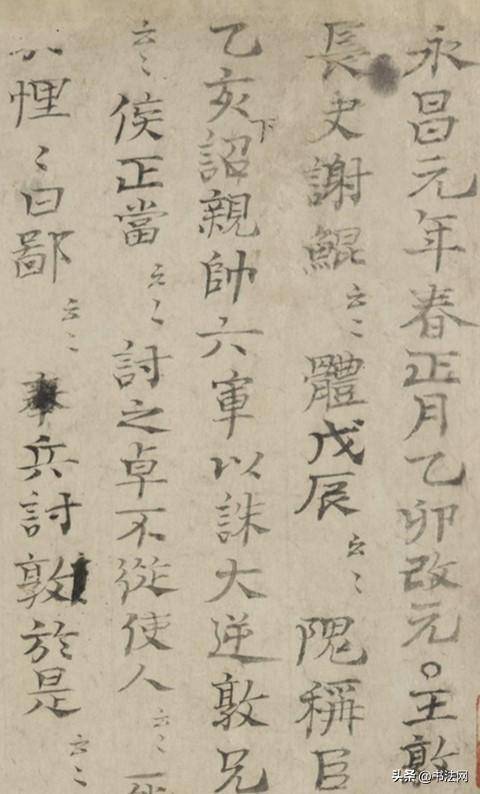 永昌元年春正月乙卯改元〇王敦
長史謝鯤云〻體戊辰云〻隗稱臣
乙亥下詔親帥六軍以誅大逆敦兄
云〻侯正當云〻討之卓不從使人云〻
悝〻曰鄙云〻兵討敦於是云〻
头条 @书法网